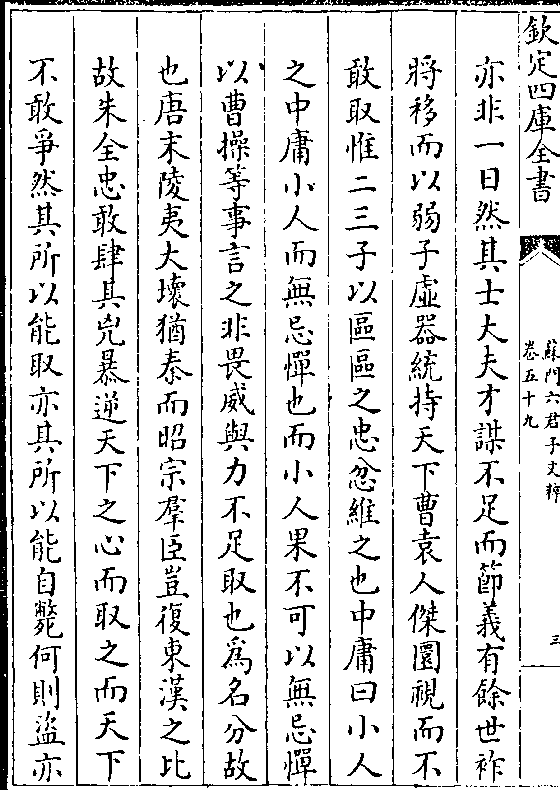 欽定四庫全書
蘇門六君子文粹
卷五十九
三
亦非一日然其士大夫才謀不足而節義有餘世祚
將移而以弱子虛器統持天下曹袁人傑圜視而不
敢取惟二三子以區區之忠忿維之也中庸曰小人
之中庸小人而無忌憚也而小人果不可以無忌憚
以曹操等事言之非畏威與力不足取也為名分故
也唐末陵夷大壞猶秦而昭宗羣臣豈復東漢之比
故朱全忠敢肆其兇暴逆天下之心而取之而天下
不敢爭然其所以能取亦其所以能自斃何則盜亦